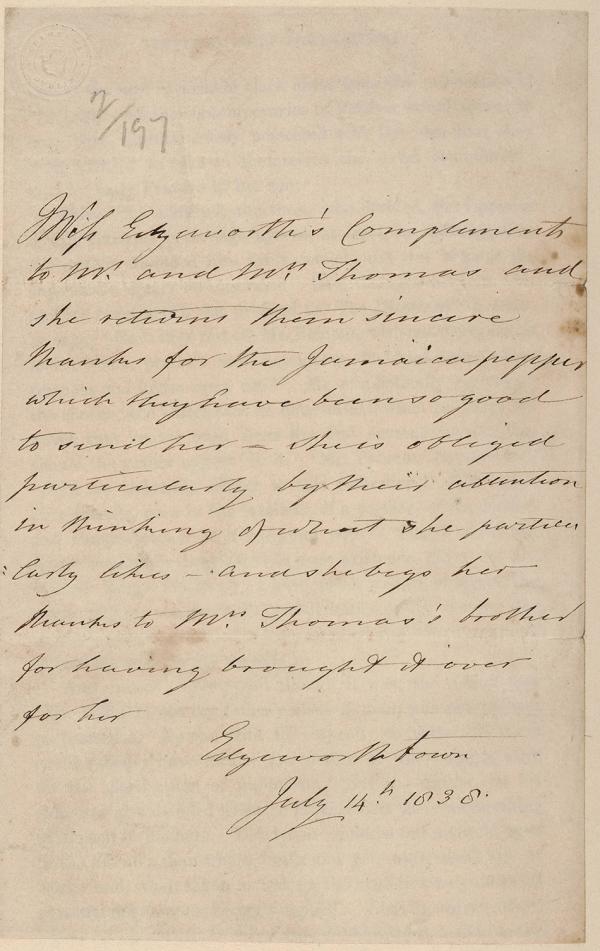 2/197
Miss Edgeworth's Compliments
to Mr. and Mrs. Thomas and
she returns them sincere
thanks for the Jamaica pepper
which they have been so good
to send her – she is obliged
particularly by their attention
in thinking of what she particu
:larly likes – and she begs her
thanks to Mrs. Thomas's brother
for having brought it over
for her
Edgeworthtown
July 14th 1838.